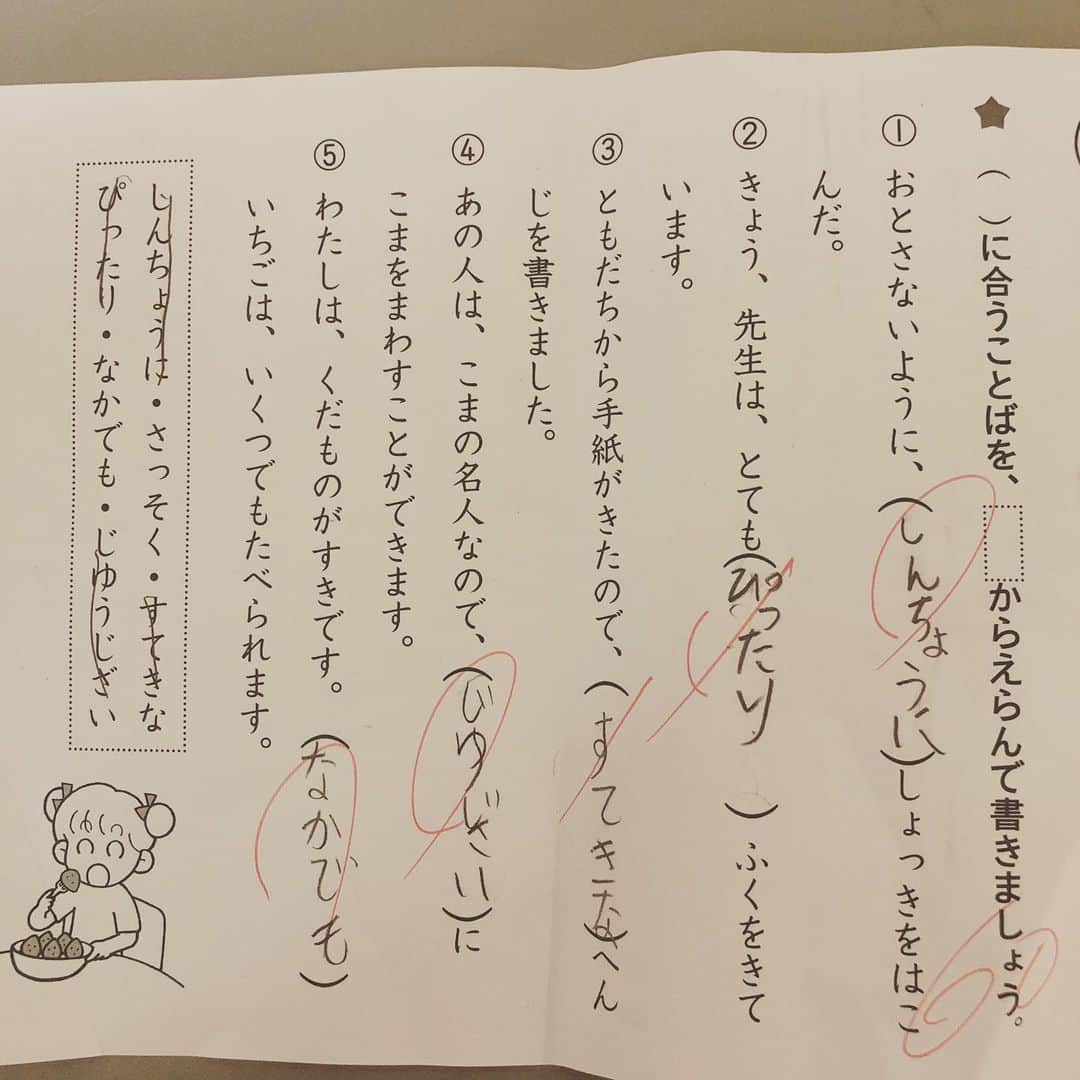 ★ （ ）に合うことばを、 からえらんで書きましょう。
① おとさないように、（しんちょうに）しょっきをはこ
んだ。
② きょう、先生は、とても（ぴったり）ふくをきて
います。
③ ともだちから手紙がきたので、（すてきな）へん
じを書きました。
④ あの人は、こまの名人なので、（じゆじざい）に
こまをまわすことができます。
⑤ わたしは、くだものがすきです。（なかでも）
いちごは、いくつでもたべられます。
しんちょうに・さっそく・すてきな
ぴったり・なかでも・じゆうじざい